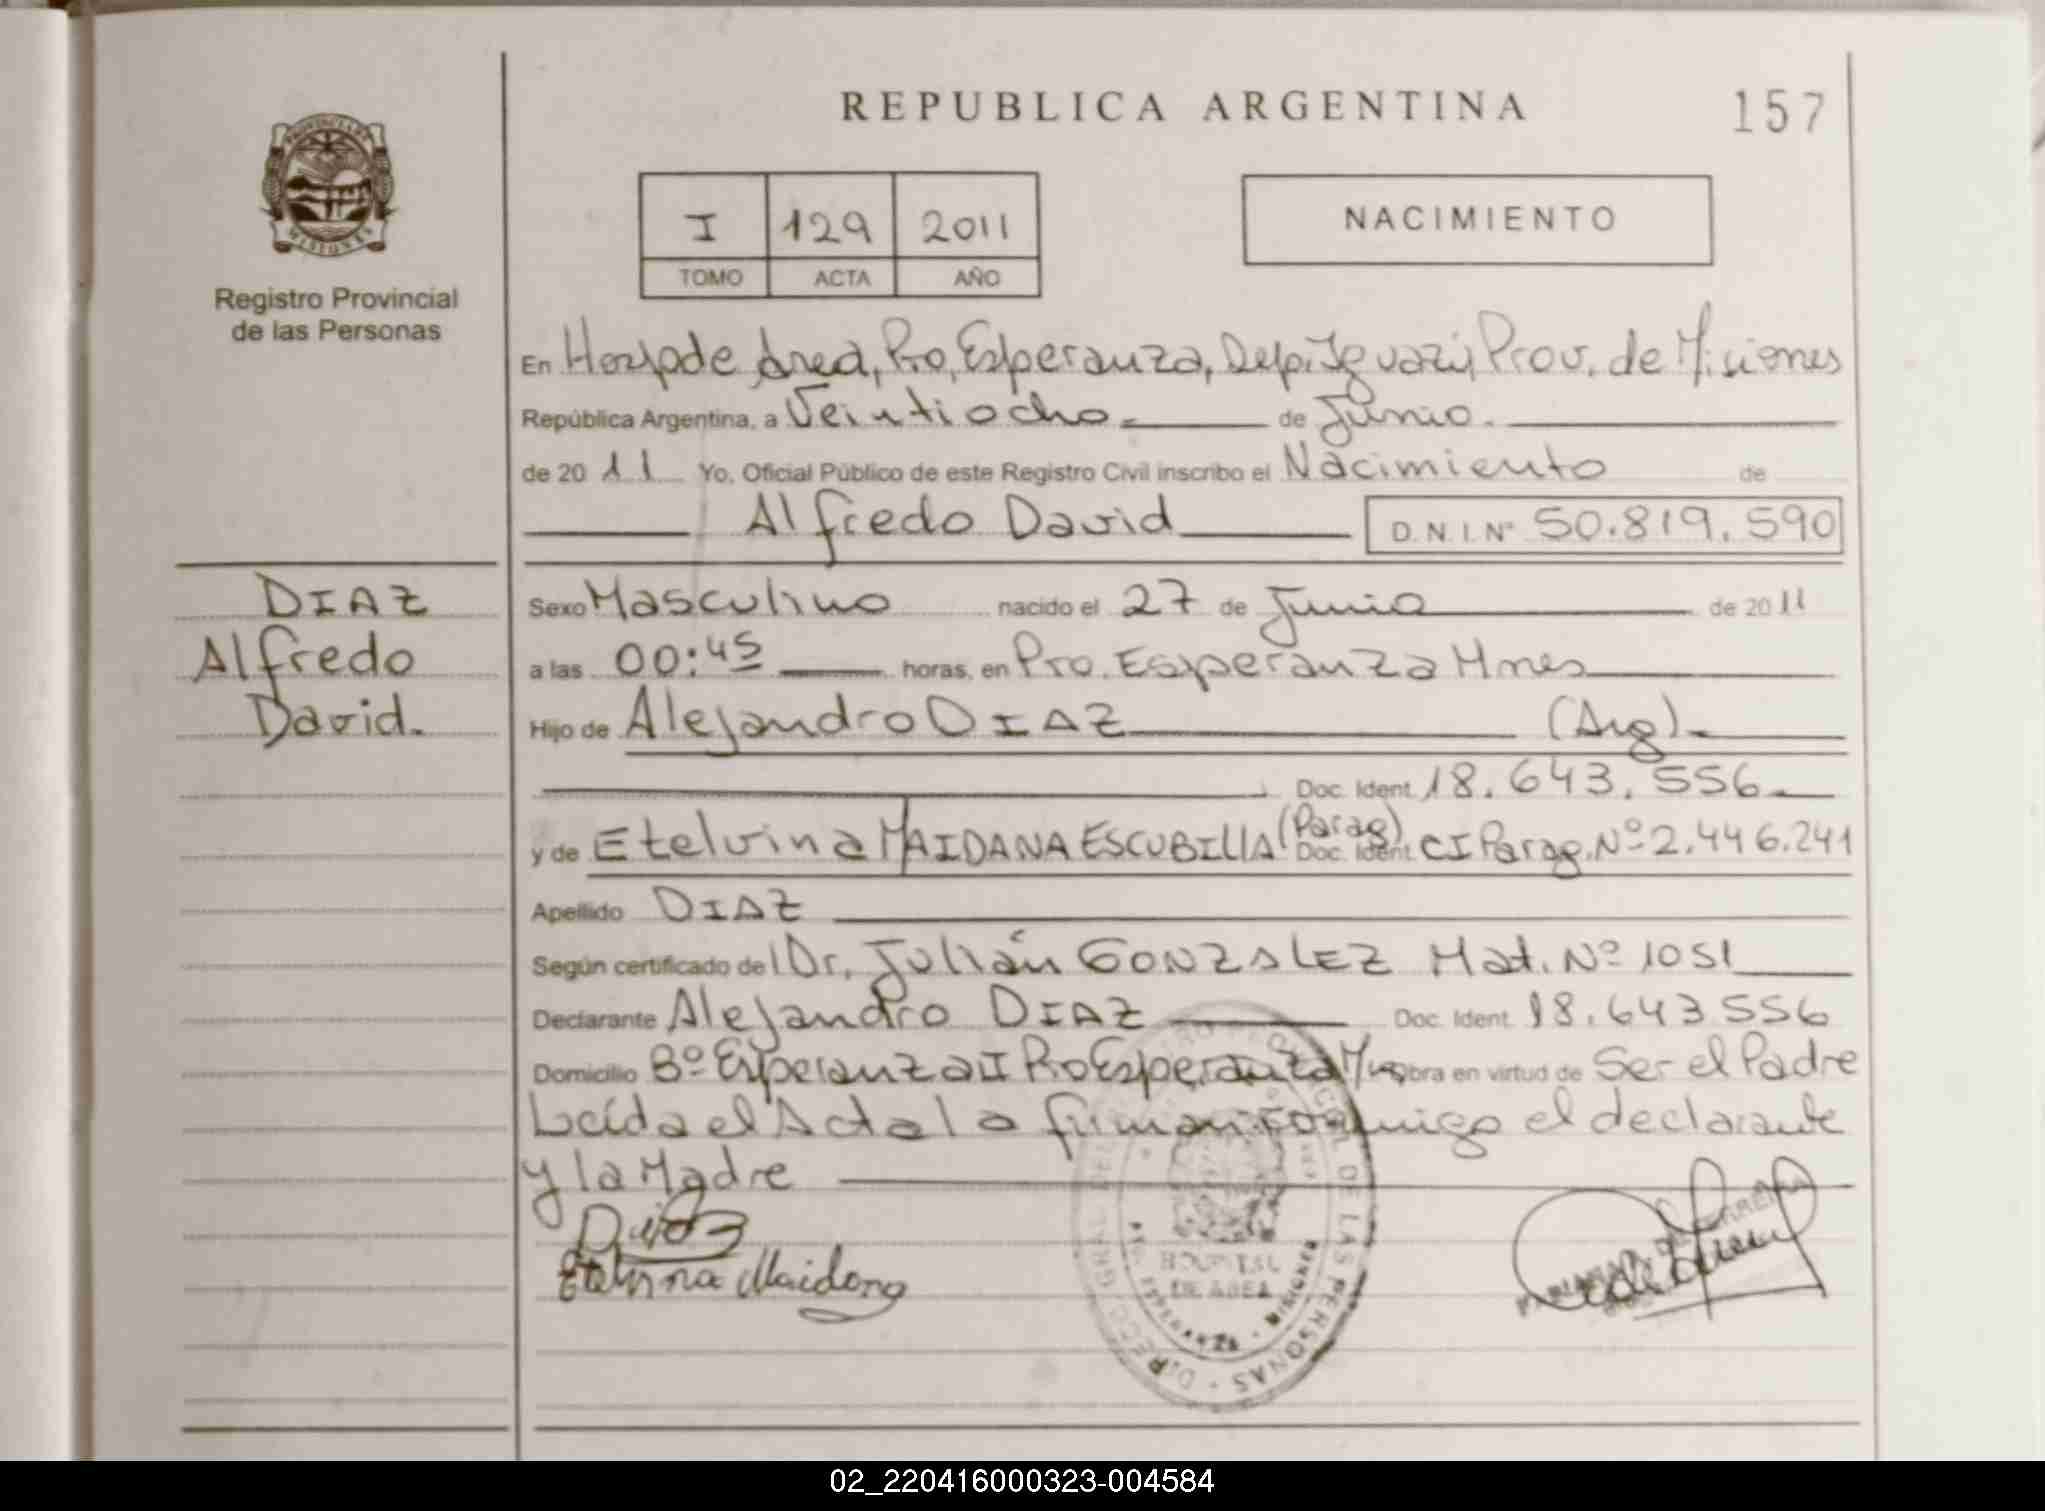 REPUBLICA ARGENTINA
157
PROVINCIA DE
MISIONES
Registro Provincial
de las Personas
I 129 2011
TOMO ACTA AÑO
NACIMIENTO
En Hosp de Area, Pto, Esperanza, Dep. Iguazú, Prov. de Misiones
República Argentina, a Veintiocho de Junio.
de 2011 Yo, Oficial Público de este Registro Civil inscribo el Nacimiento de
Alfredo David D.N.I.Nº 50.819.590
DIAZ
Alfredo
David.
Sexo Masculino nacido el 27 de Junio de 2011
a las 00:45 horas, en Pto. Esperanza Mnes
Hijo de Alejandro DIAZ (Arg).
Doc. Ident. 18.643.556
y de Etelvina MAIDANA ESCUBILLA (Parag) Doc. Ident. CI Parag. Nº 2.446.241
Apellido DIAZ
Según certificado del Dr. Julián GONZALEZ Mat. Nº 1051
Declarante Alejandro DIAZ Doc. Ident. 18.643556
Domicilio Bº Esperanza II Pto Esperanza Mnes Obra en virtud de Ser el Padre
Leída el Acta la firman conmigo el declarante
y la Madre
Etelvina Maidana
HOSPITAL
DE AREA
PTO. ESPERANZA - MISIONES
DE LAS PERSONAS
02_220416000323-004584